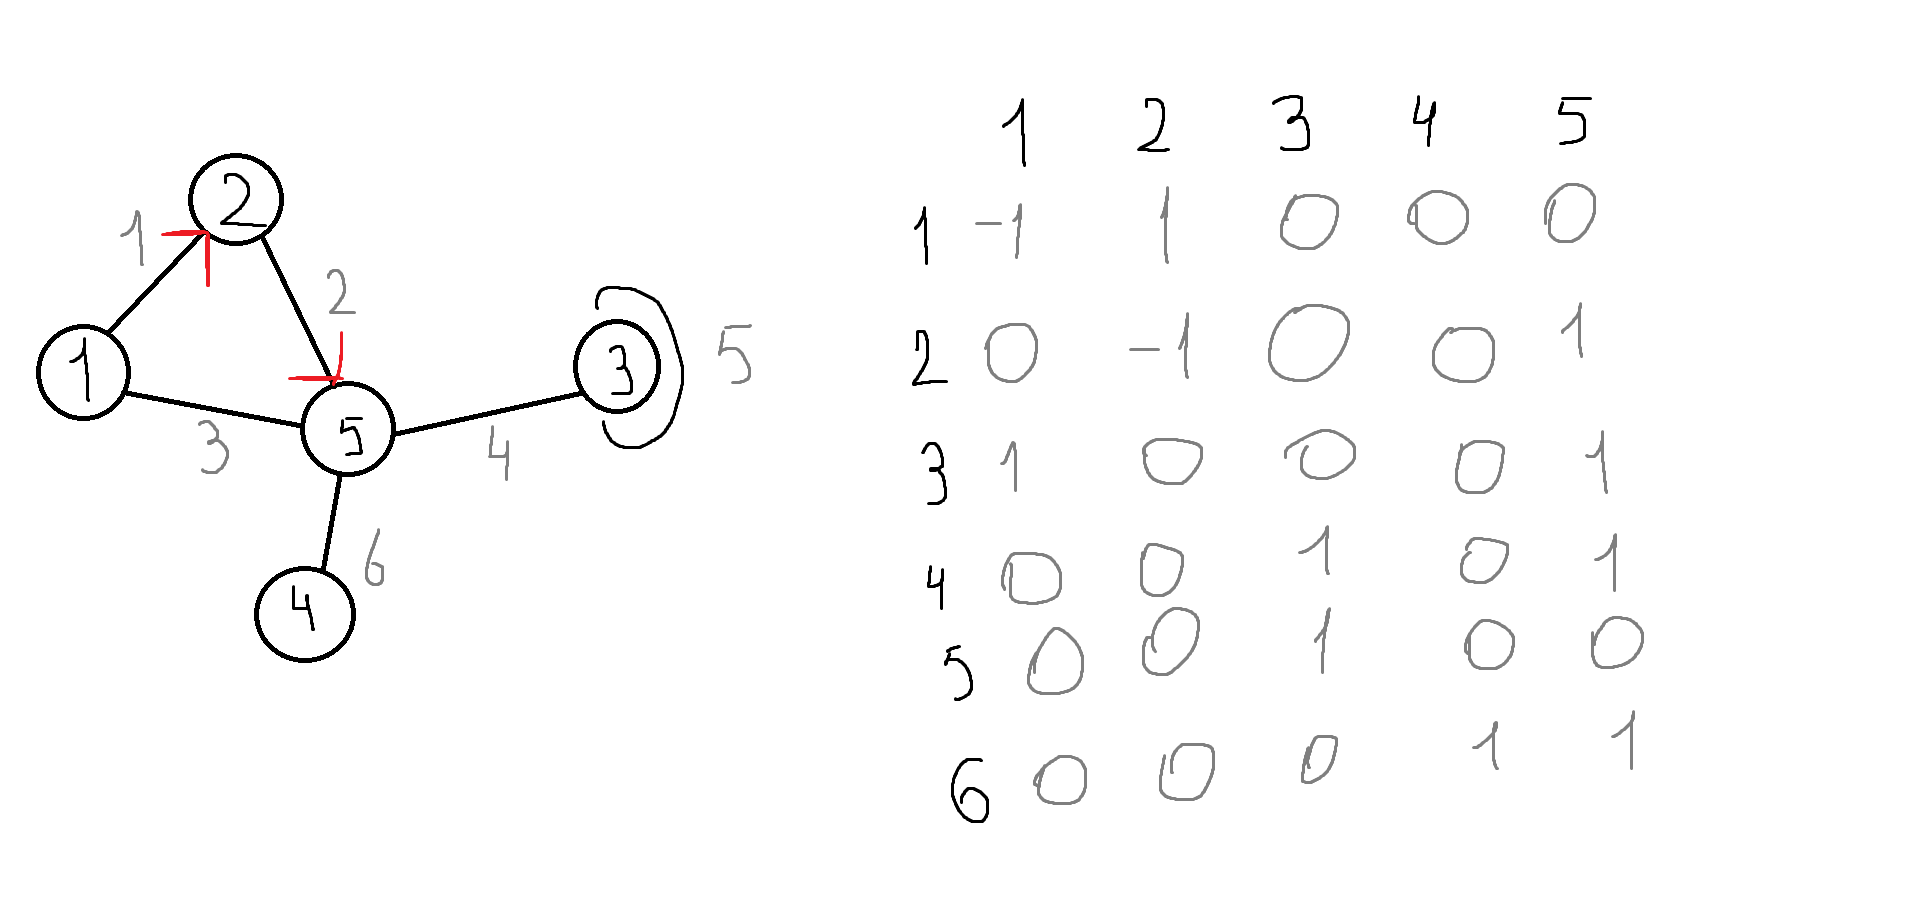 2
1
2
1
3
5
5
3
4
6
4
1 2 3 4 5
1 -1 1 0 0 0
2 0 -1 0 0 1
3 1 0 0 0 1
4 0 0 1 0 1
5 0 0 1 0 0
6 0 0 0 1 1